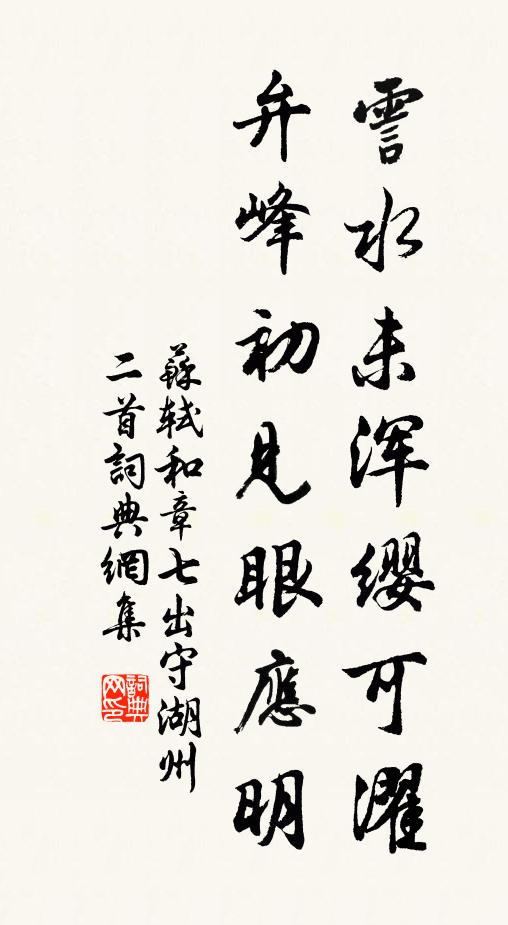 霅水未浑缨可濯
弁峰初見眼應明
蘇軾和章七出守湖州
二首詞典網集
詞典
网印